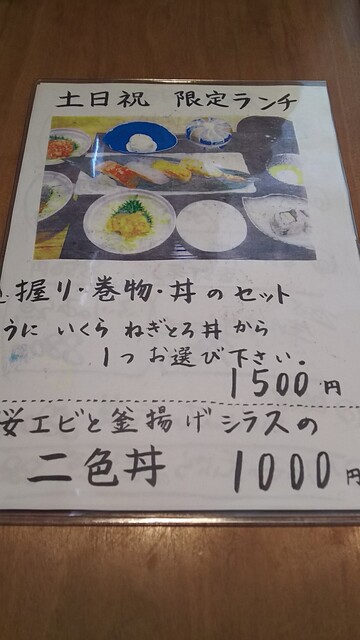 土日祝 限定ランチ
握り・巻物・丼のセット
うに いくら ねぎとろ丼から
1つお選び下さい。
1500円
桜エビと釜揚げシラスの
二色丼 1000円